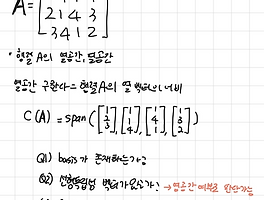 A=
2 1 4 3
-3 4 1 2
• 행렬 A의 열공간, 영공간
열공간 구한다 = 행렬 A의 열 벡터의 너비
C(A) = span([1 2 3], [1 1 4], [1 4 1], [1 3 2])
Q1) basis가 존재하는가?
Q2) 선형독립성 벡터가 있는가? → 열공간 여부로 판단가능